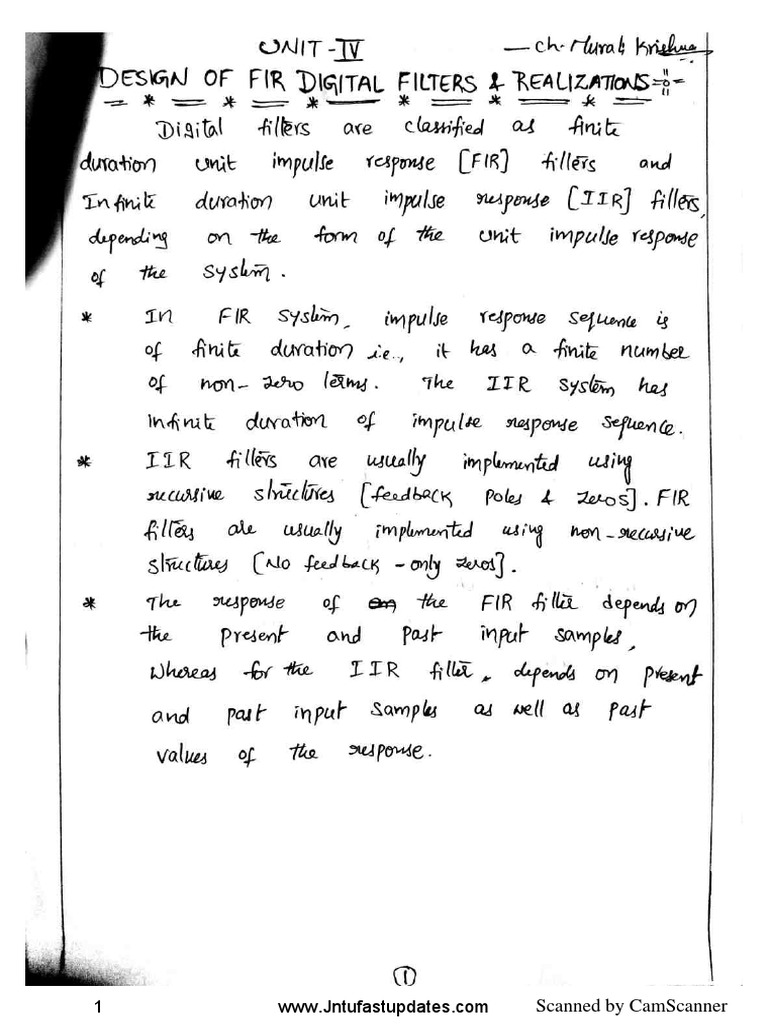 UNIT-IV — Ch. Murali Krishna
DESIGN OF FIR DIGITAL FILTERS & REALIZATIONS
Digital filters are classified as finite
duration unit impulse response [FIR] filters and
Infinite duration unit impulse response [IIR] filters,
depending on the form of the unit impulse response
of the system.
* In FIR system, impulse response sequence is
of finite duration i.e., it has a finite number
of non-zero terms. The IIR system has
infinite duration of impulse response sequence.
* IIR filters are usually implemented using
recursive structures [feedback poles & zeros]. FIR
filters are usually implemented using non-recursive
structures [No feedback - only zeros].
* The response of the FIR filter depends on
the present and past input samples,
whereas for the IIR filter, depends on present
and past input samples as well as past
values of the response.
1
1 www.Jntufastupdates.com Scanned by CamScanner